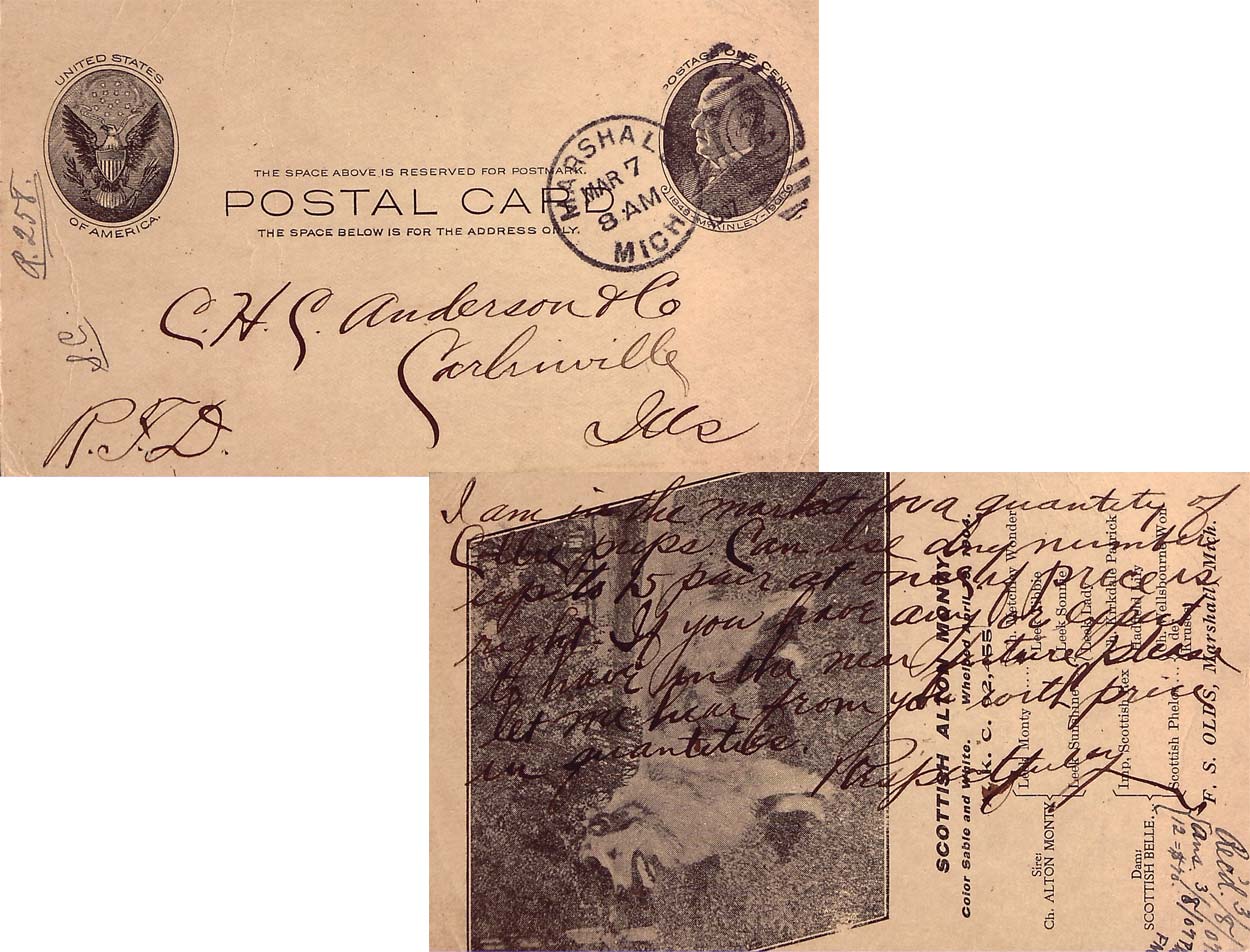 UNITED STATES
OF AMERICA.
POSTAGE ONE CENT
1843-McKINLEY-1901
THE SPACE ABOVE IS RESERVED FOR POSTMARK.
POSTAL CARD
THE SPACE BELOW IS FOR THE ADDRESS ONLY.
MARSHALL
MAR 7
8 AM
1907
MICH
R. 258.
C. H. C. Anderson & Co
Carlinville
Ills
R.F.D.
I am in the market for a quantity of
Collie pups. Can use any number
up to 15 pair at once if price is
right. If you have any or expect
to have in the near future please
let me hear from you with price
in quantities.
Respectfully
SCOTTISH ALTON MONTY.
Color Sable and White. Whelped April 1904.
A. K. C. 82,455
Sire:
Ch. ALTON MONTY
Leek Monty
Ch. Wonder
Leek Libbie
Leek Sunshine
Leek Sonnie
Leek Lady
Dam:
SCOTTISH BELLE.
Imp. Scottish Rex
Ch. Parkdale Patrick
Lady
Scottish Phelon
Ch. Wellsbourne Won
F. S. OLDS, Marshall, Mich.
Recd. 3/8/07
Ans. 3/8/07